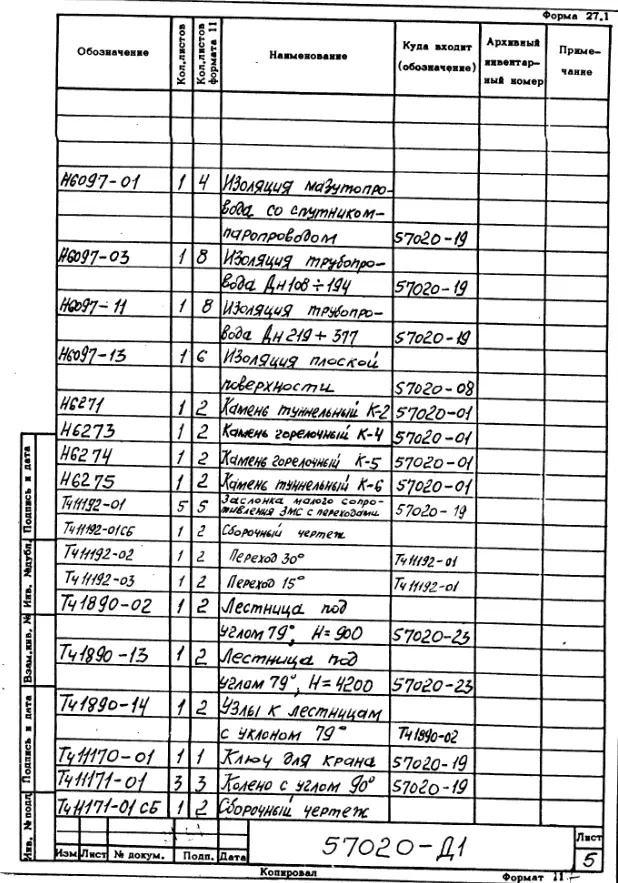 Форма 27.1
Обозначение Кол.листов Кол.листов формата 11 Наименование Куда входит (обозначение) Архивный инвентар- ный номер Приме- чание
Н6097-01 1 4 Изоляция мазутопро-
вода со спутником-
паропроводом 57020-19
Н6097-03 1 8 Изоляция трубопро-
вода Дн108÷194 57020-19
Н6097-11 1 8 Изоляция трубопро-
вода Дн 219÷377 57020-19
Н6097-13 1 6 Изоляция плоской
поверхности 57020-08
Н6271 1 2 Камень туннельный К-2 57020-01
Н6273 1 2 Камень горелочный К-4 57020-01
Н6274 1 2 Камень горелочный К-5 57020-01
Н6275 1 2 Камень туннельный К-6 57020-01
Тч11192-01 5 5 Заслонка малого сопро-
тивления ЗМС с переходами 57020-19
Тч11192-01СБ 1 2 Сборочный чертеж
Тч11192-02 1 2 Переход 30° Тч11192-01
Тч11192-03 1 2 Переход 15° Тч11192-01
Тч1890-02 1 2 Лестница под
углом 79°, Н=900 57020-23
Тч1890-13 1 2 Лестница под
углом 79°, Н=4200 57020-23
Тч1890-14 1 2 Узлы к лестницам
с уклоном 79° Тч1890-02
Тч11170-01 1 1 Ключ для крана 57020-19
Тч11171-01 3 3 Колено с углом 90° 57020-19
Тч11171-01 СБ 1 2 Сборочный чертеж
Подпись и дата
Инв. № дубл.
Взам.инв. №
Подпись и дата
Инв. № подл.
Изм Лист № докум. Подп. Дата
57020-Д1
Лист
5
Копировал Формат 11